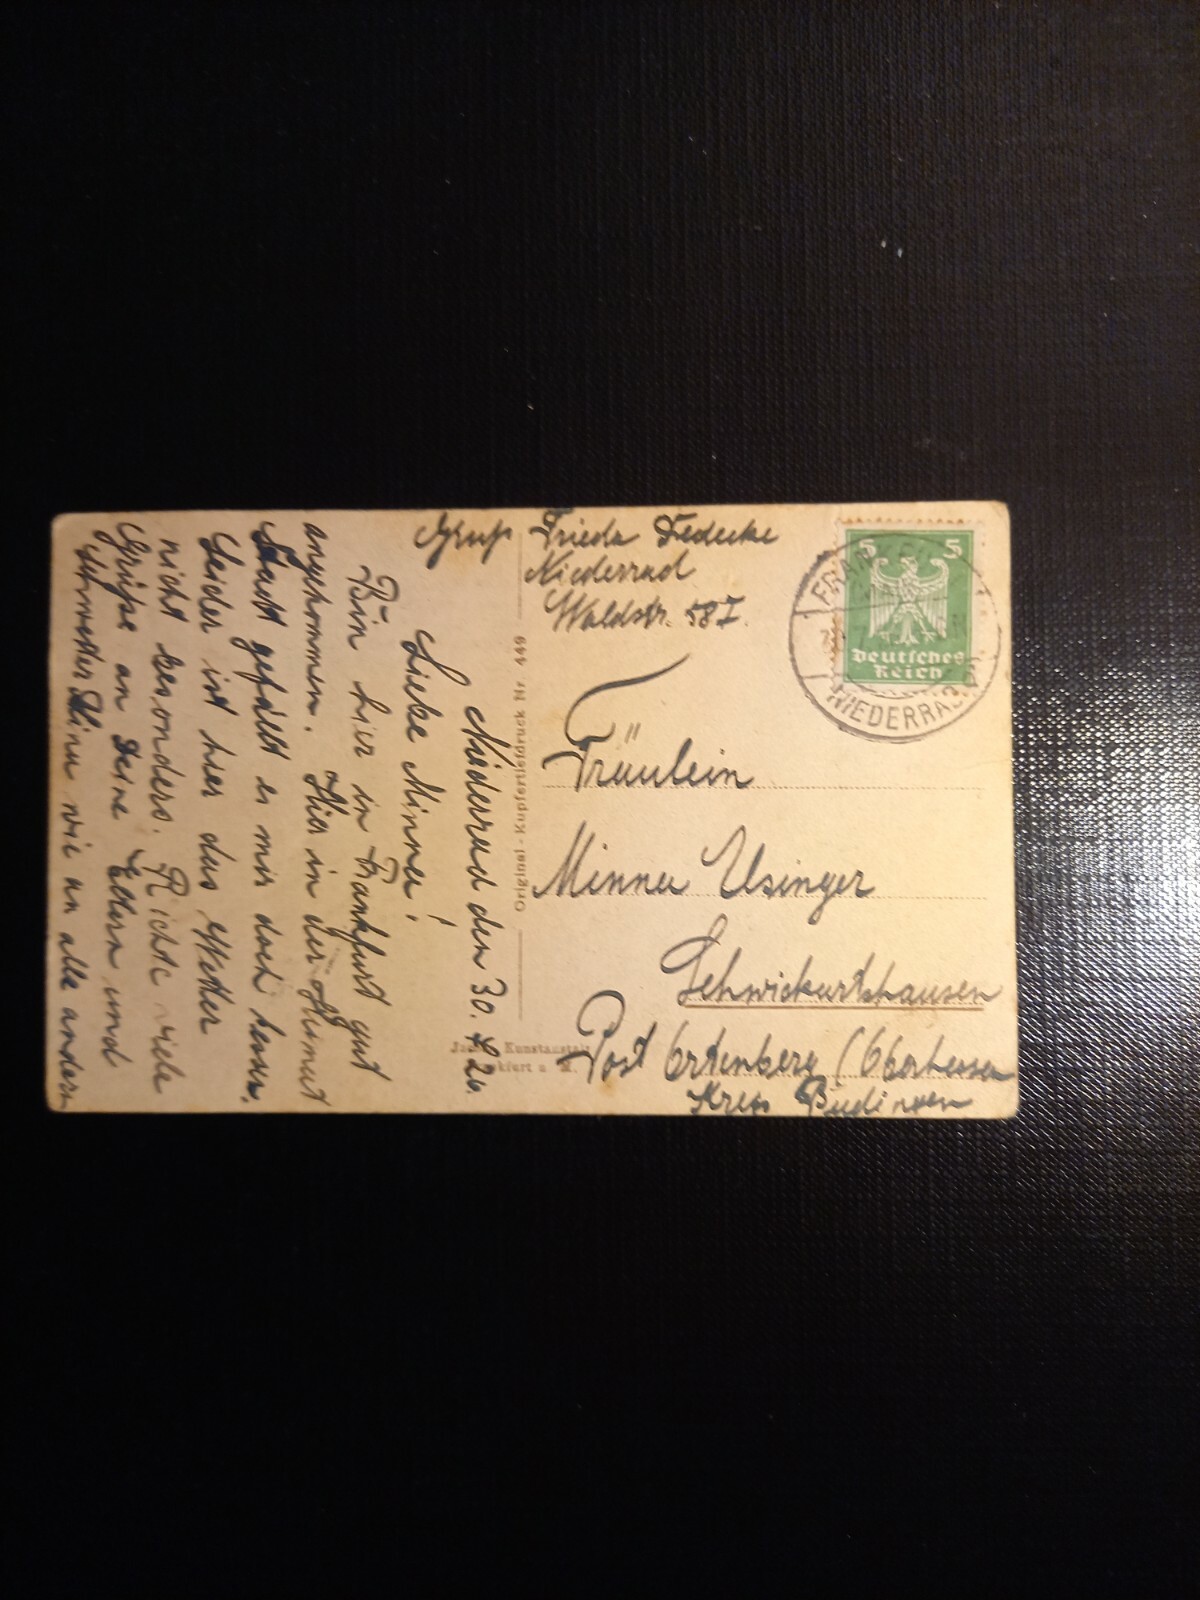 Niederrad den 30. 4. 26.
Liebe Minna!
Bin hier in Frankfurt gut
angekommen. Hier in der Heimat
Stadt gefällt es mir doch besser.
Leider ist hier das Wetter
nicht besonders. Richte viele
Grüße an Deine Eltern und
Schwester Dina wie an alle andern
Gruß Frieda Dedecke
Niederrad
Waldstr. 58 I.
Original-Kupfertiefdruck Nr. 449
Kunstanstalt
5 5
Deutsches
Reich
NIEDERRAD
Fräulein
Minna Usinger
Schwickartshausen
Post Ortenberg (Oberhessen
Kreis Büdingen